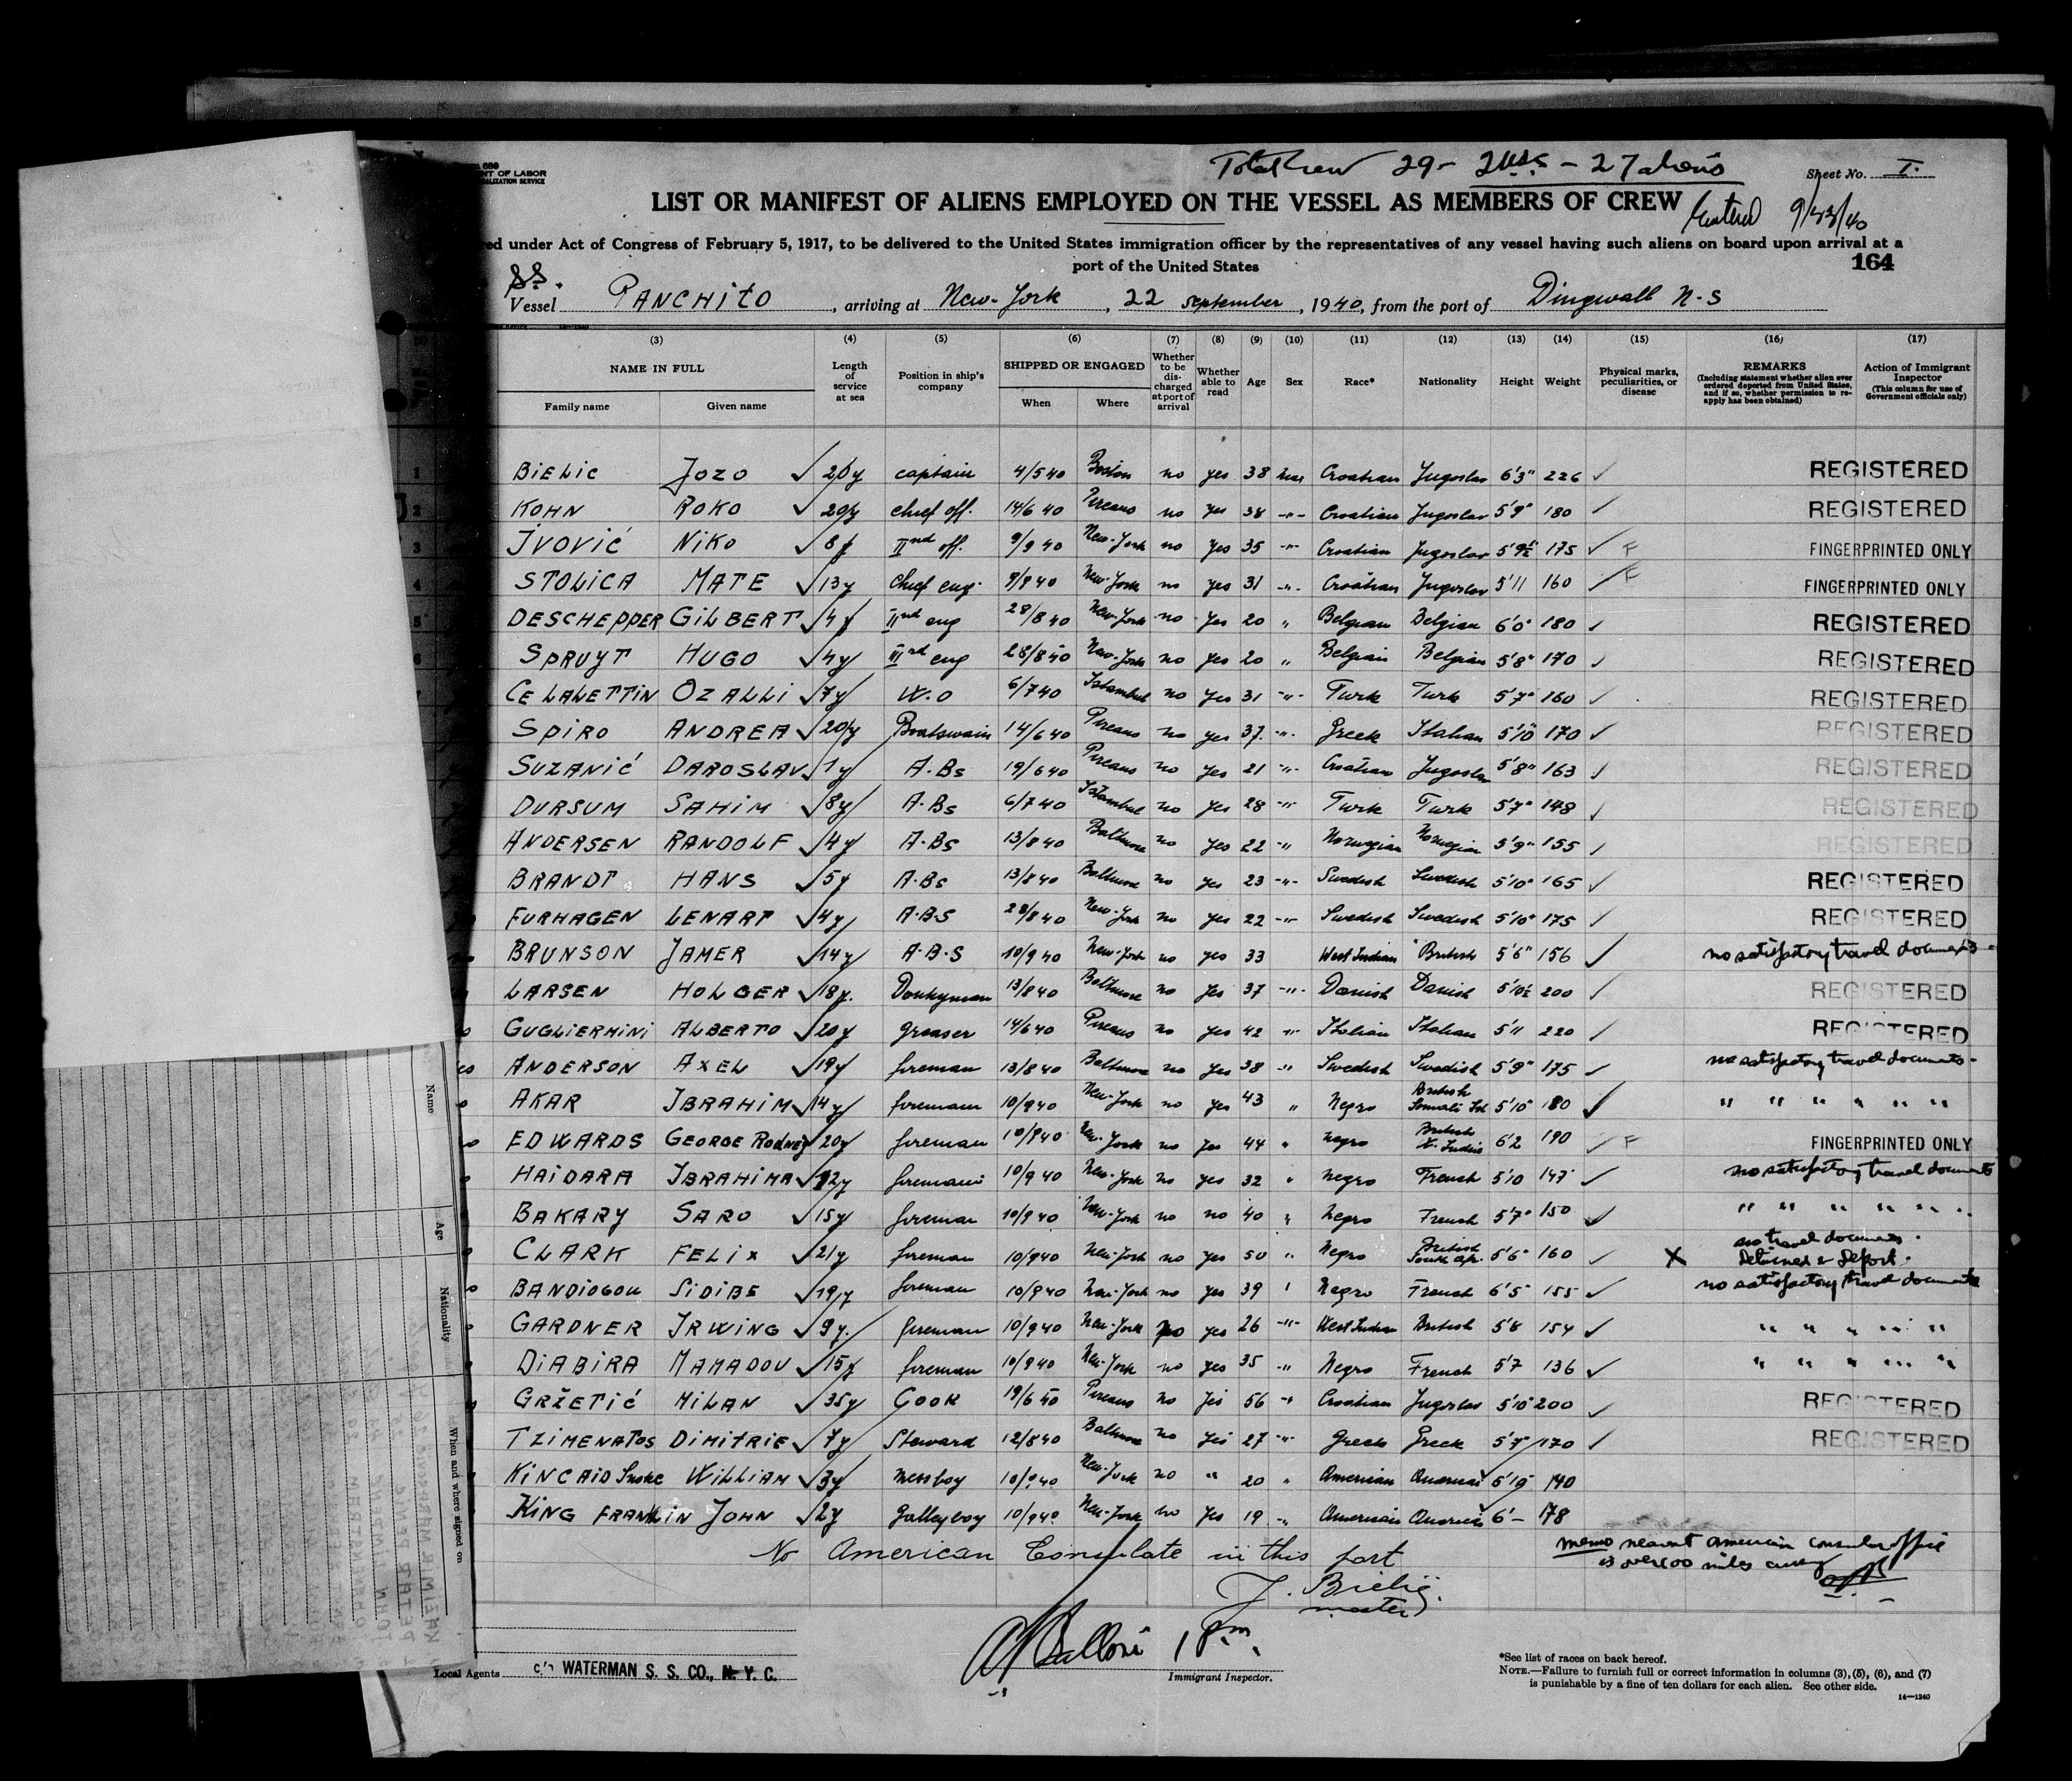 Total Crew 29 - 2 U.S. - 27 aliens
Sheet No. I.
NT OF LABOR
LIST OR MANIFEST OF ALIENS EMPLOYED ON THE VESSEL AS MEMBERS OF CREW
9/23/40
ed under Act of Congress of February 5, 1917, to be delivered to the United States immigration officer by the representatives of any vessel having such aliens on board upon arrival at a
port of the United States
164
SS. Vessel PANCHITO, arriving at New-York, 22 september, 1940, from the port of Dingwall N-S
(3) (4) (5) (6) (7) (8) (9) (10) (11) (12) (13) (14) (15) (16) (17)
NAME IN FULL Family name Given name Length of service at sea Position in ship's company SHIPPED OR ENGAGED When Where Whether to be discharged at port of arrival Whether able to read Age Sex Race* Nationality Height Weight Physical marks, peculiarities, or disease REMARKS (Including statement whether alien ever ordered deported from United States, and if so, whether permission to reapply has been obtained) Action of Immigrant Inspector (This column for use of Government officials only)
1 BIELIC JOZO 20y captain 4/5 40 Boston no yes 38 Croatian Jugoslav 6'3" 226 REGISTERED
2 KOHN ROKO 20y chief off. 14/6 40 Pireaus no yes 38 -"- Croatian Jugoslav 5'9" 180 REGISTERED
3 IVOVIĆ NIKO 8y IInd off. 9/9 40 New-York no yes 35 -"- Croatian Jugoslav 5'9½ 175 F FINGERPRINTED ONLY
4 STOLICA MATE 13y chief eng. 9/9 40 New-York no yes 31 -"- Croatian Jugoslav 5'11 160 F FINGERPRINTED ONLY
5 DESCHEPPER GILBERT 4y IInd eng 28/8 40 New-York no yes 20 " Belgian Belgian 6'0" 180 REGISTERED
6 SPRUYT HUGO 4y IIIrd eng 28/8 40 New-York no yes 20 " Belgian Belgian 5'8" 170 REGISTERED
CELALETTIN OZALLI 7y W.O 6/7 40 Istambul no yes 31 -"- Turk Turk 5'7" 160 REGISTERED
SPIRO ANDREA 20y Boatswain 14/6 40 Pireaus no yes 37 -"- Greek Italian 5'10" 170 REGISTERED
SUZANIĆ DAROSLAV 1y A.Bs 19/6 40 Pireaus no yes 21 -"- Croatian Jugoslav 5'8" 163 REGISTERED
DURSUM SAHIM 8y A.Bs 6/7 40 Istambul no yes 28 -"- Turk Turk 5'7" 148 REGISTERED
ANDERSEN RANDOLF 4y A.Bs 13/8 40 Baltimore no yes 22 -"- Norwegian Norwegian 5'9" 155 REGISTERED
BRANDT HANS 5y A.Bs 13/8 40 Baltimore no yes 23 -"- Swedish Swedish 5'10" 165 REGISTERED
FURHAGEN LENART 4y A.B.S 28/8 40 New-York no yes 22 -"- Swedish Swedish 5'10" 175 REGISTERED
BRUNSON JAMER 14y A.B.S 10/9 40 New-York no yes 33 West Indian British 5'6" 156 no satisfactory travel documents -
LARSEN HOLGER 18y. Donkyman 13/8 40 Baltimore no yes 37 -"- Danish Danish 5'10½ 200 REGISTERED
GUGLIERMINI ALBERTO 20y greaser 14/6 40 Pireaus no yes 42 -"- Italian Italian 5'11 220 REGISTERED
ANDERSON AXEL 19y fireman 13/8 40 Baltimore no yes 38 -"- Swedish Swedish 5'9" 175 no satisfactory travel documents -
AKAR IBRAHIM 14y fireman 10/9 40 New-York no yes 43 " Negro British Somali 5'10" 180 " " " " " "
EDWARDS GEORGE Rodney 20y fireman 10/9 40 New-York no yes 44 " Negro British W. Indies 6'2 190 F FINGERPRINTED ONLY
HAIDARA IBRAHIMA 12y fireman 10/9 40 New-York no yes 32 " Negro French 5'10 147 no satisfactory travel documents
BAKARY SARO 15y fireman 10/9 40 New-York no no 40 " Negro French 5'7" 150 " " " " " "
CLARK FELIX 21y fireman 10/9 40 New-York no yes 50 " Negro British South Afr. 5'6" 160 X no travel documents. Detained & Deport.
BANDIOGOU SIDIBE 19y fireman 10/9 40 New-York no yes 39 " Negro French 6'5" 155 no satisfactory travel documents
GARDNER IRWING 9y. fireman 10/9 40 New-York no yes 26 -"- West Indian British 5'8 154 " " " " "
DIABIRA MAMADOU 15y fireman 10/9 40 New-York no yes 35 -"- Negro French 5'7 136 " " " " "
GRŽETIĆ MILAN 35y COOK 19/6 40 Pireaus no yes 56 -"- Croatian Jugoslav 5'10" 200 REGISTERED
TZIMENATOS DIMITRIE 7y Steward 12/8 40 Baltimore no yes 27 -"- Greek Greek 170 REGISTERED
KINCAID WILLIAM 3y messboy 10/9 40 New-York no " 20 " American American 5'10" 140
KING FRANKLIN JOHN 2y Galleyboy 10/9 40 New-York no yes 19 -"- American American 6'- 178
No American Consulate in this port
memo nearest American consular office
is over 100 miles away
J. Bielić.
master
1 Pm
Immigrant Inspector.
Local Agents c/o WATERMAN S. S. CO., N. Y. C.
*See list of races on back hereof.
NOTE.—Failure to furnish full or correct information in columns (3), (5), (6), and (7)
is punishable by a fine of ten dollars for each alien. See other side.
14—1240
Name
Age
Nationality
When and where signed on